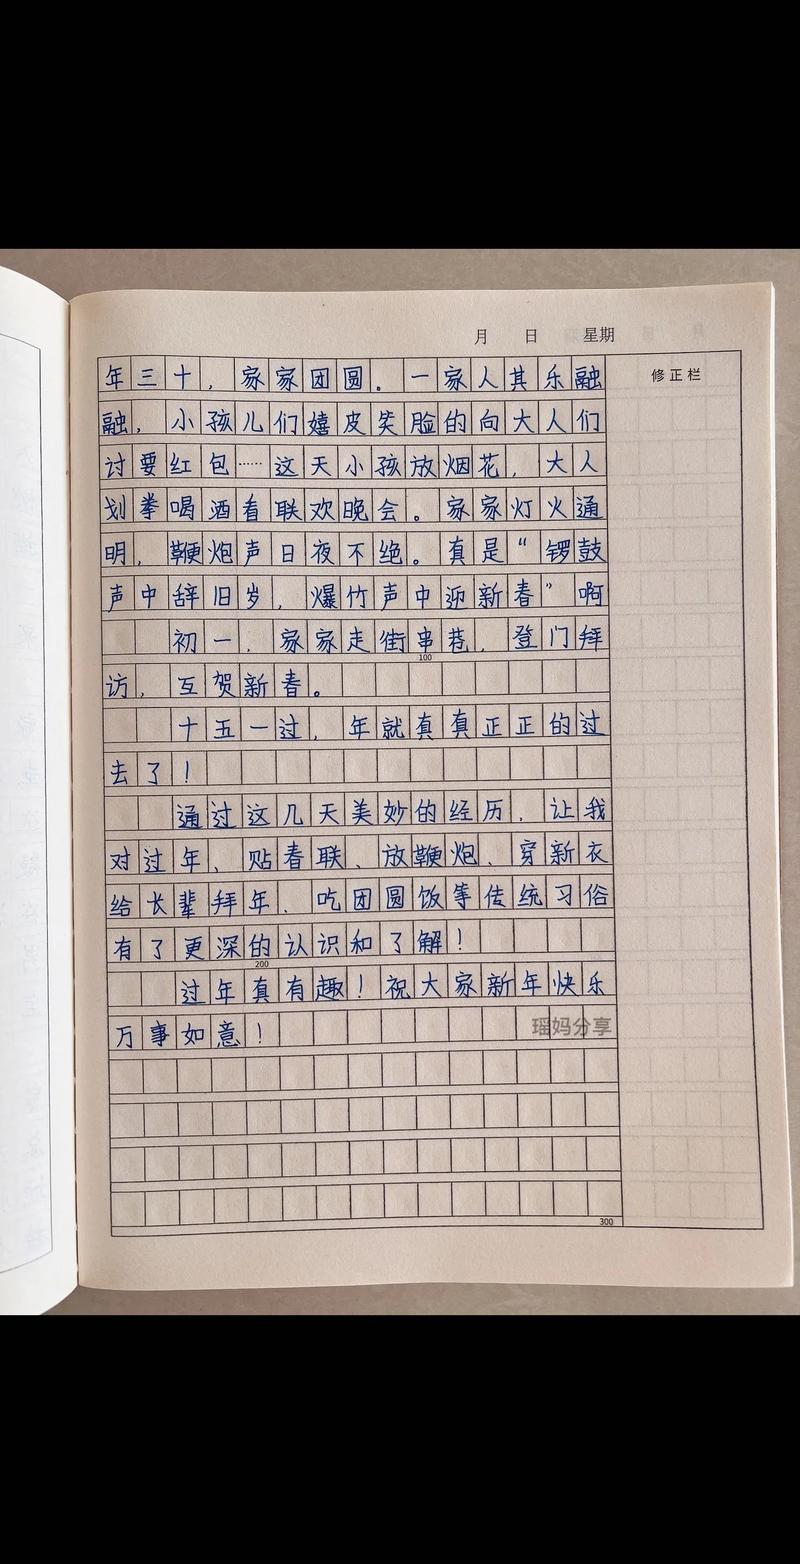 月 日 星期
修正栏
年三十，家家团圆。一家人其乐融
融，小孩儿们嬉皮笑脸的向大人们
讨要红包……这天小孩放烟花，大人
划拳喝酒看联欢晚会。家家灯火通
明，鞭炮声日夜不绝。真是“锣鼓
声中辞旧岁，爆竹声中迎新春”啊
初一，家家走街串巷，登门拜
100
访，互贺新春。
十五一过，年就真真正正的过
去了！
通过这几天美妙的经历，让我
对过年、贴春联、放鞭炮、穿新衣
给长辈拜年、吃团圆饭等传统习俗
有了更深的认识和了解！
200
过年真有趣！祝大家新年快乐
万事如意！
瑶妈分享
300